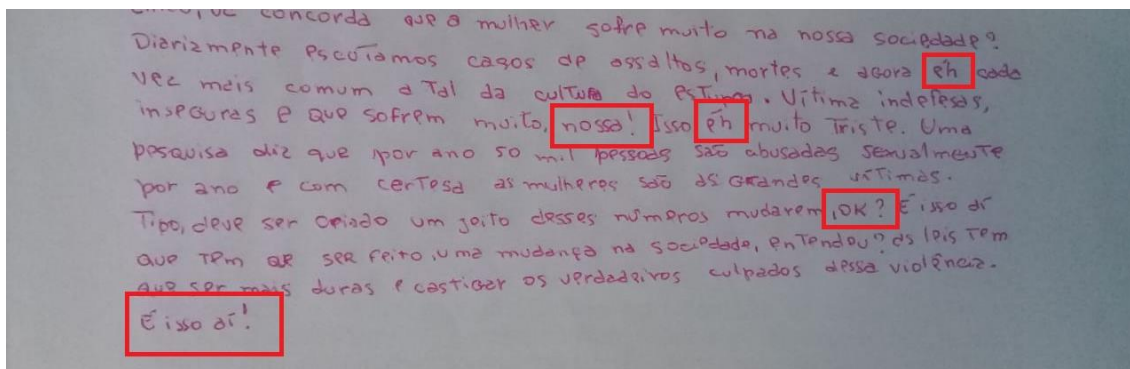 concorda que a mulher sofre muito na nossa sociedade?
Diariamente escutamos casos de assaltos, mortes e agora éh cada
vez mais comum a tal da cultura do estupro. Vítima indefesas,
inseguras e que sofrem muito, nossa! Isso éh muito triste. Uma
pesquisa diz que por ano 50 mil pessoas são abusadas sexualmente
por ano e com certesa as mulheres são as grandes vítimas.
Tipo, deve ser criado um jeito desses números mudarem, OK? É isso aí
que tem que ser feito, uma mudança na sociedade, entendeu? as leis tem
que ser mais duras e castigar os verdadeiros culpados dessa violência.
É isso aí!